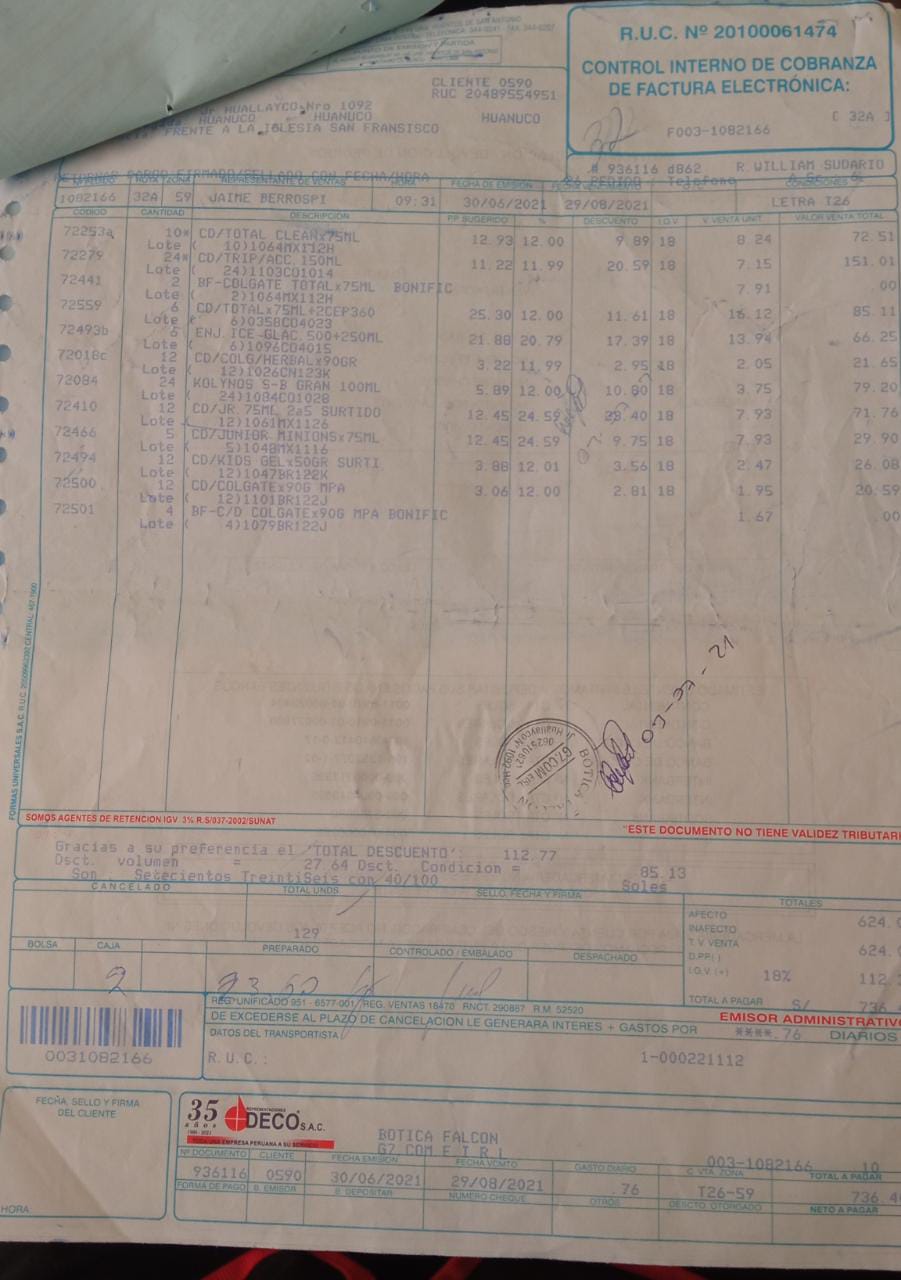 R.U.C. Nº 20100061474
CONTROL INTERNO DE COBRANZA
DE FACTURA ELECTRÓNICA:
[ 32A ]
F003-1082166
CLIENTE 0590
RUC 20489554951
Jr. HUALLAYCO Nro 1092
HUANUCO HUANUCO HUANUCO
FRENTE A LA IGLESIA SAN FRANSISCO
# 936116 d862 R.WILLIAM SUDARIO
RETORNAR CARGO FIRMADO/SELLADO CON FECHA/HORA
REPRESENTANTE DE VENTAS HORA FECHA DE EMISIÓN CONDICIONES
1082166 32A 59 JAIME BERROSPI 09:31 30/06/2021 29/08/2021 LETRA T26
CODIGO CANTIDAD DESCRIPCION P.P. SUGERIDO % DESCUENTO I.G.V. V. VENTA UNIT. VALOR VENTA TOTAL
72253a 10* CD/TOTAL CLEANx75ML 12.93 12.00 9.89 18 8.24 72.51
Lote ( 10)1064MX112H
72279 24* CD/TRIP/ACC.150ML 11.22 11.99 20.59 18 7.15 151.01
Lote ( 24)1103CO1014
72441 2 BF-COLGATE TOTALx75ML BONIFIC 7.91 .00
Lote ( 2)1064MX112H
72559 6 CD/TOTALx75ML+2CEP360 25.30 12.00 11.61 18 16.12 85.11
Lote ( 6)0358CO4023
72493b 6 ENJ.ICE GLAC.500+250ML 21.88 20.79 17.39 18 13.94 66.25
Lote ( 6)1096CO4015
72018c 12 CD/COLG/HERBALx90GR 3.22 11.99 2.95 18 2.05 21.65
Lote ( 12)1026CN123K
72084 24 KOLYNOS S-B GRAN 100ML 5.89 12.00 10.80 18 3.75 79.20
Lote ( 24)1084CO1028
72410 12 CD/JR.75ML 2a5 SURTIDO 12.45 24.59 28.40 18 7.93 71.76
Lote ( 12)1061MX1126
72466 5 CD/JUNIOR MINIONSx75ML 12.45 24.59 9.75 18 7.93 29.90
Lote ( 5)1048MX1116
72494 12 CD/KIDS GELx50GR SURTI 3.88 12.01 3.56 18 2.47 26.08
Lote ( 12)1047BR122K
72500 12 CD/COLGATEx90G MPA 3.06 12.00 2.81 18 1.95 20.59
Lote ( 12)1101BR122J
72501 4 BF-C/D COLGATEx90G MPA BONIFIC 1.67 .00
Lote ( 4)1079BR122J
BOTICA
G7.COM EIRL
Jr. Huallayco Nº 1092
SOMOS AGENTES DE RETENCION IGV. 3% R.S/037-2002/SUNAT
"ESTE DOCUMENTO NO TIENE VALIDEZ
Gracias a su preferencia el 'TOTAL DESCUENTO': 112.77
Dsct. volumen = 27.64 Dsct. Condicion = 85.13
Son : Setecientos TreintiSeis con 40/100 Soles
CANCELADO TOTAL UNDS SELLO, FECHA Y FIRMA TOTALES
129
AFECTO 624.
INAFECTO
T. V. VENTA 624.
D.PP.( )
I.G.V. (+) 18% 112.
TOTAL A PAGAR S/ 736.
BOLSA CAJA PREPARADO CONTROLADO / EMBALADO DESPACHADO
2
REG. UNIFICADO 951 - 6577-001/ REG. VENTAS 18470 RNCT. 290887 R.M. 52520
EMISOR ADMINISTRATIVO
DE EXCEDERSE AL PLAZO DE CANCELACION LE GENERARA INTERES + GASTOS POR ****.76 DIARIOS
DATOS DEL TRANSPORTISTA
R.U.C.: 1-000221112
0031082166
FECHA, SELLO Y FIRMA
DEL CLIENTE
HORA
35 años
REPRESENTACIONES
DECO S.A.C.
TODA UNA EMPRESA PERUANA A SU SERVICIO
BOTICA FALCON
G7.COM E I R L
003-1082166 10
Nº DOCUMENTO CLIENTE FECHA EMISIÓN FECHA VCMTO GASTO DIARIO C. VTA. ZONA TOTAL A PAGAR
936116 0590 30/06/2021 29/08/2021 .76 T26-59 736.4
FORMA DE PAGO B. EMISOR B. DEPOSITAR NUMERO CHEQUE OTROS DESCTO. OTORGADO NETO A PAGAR